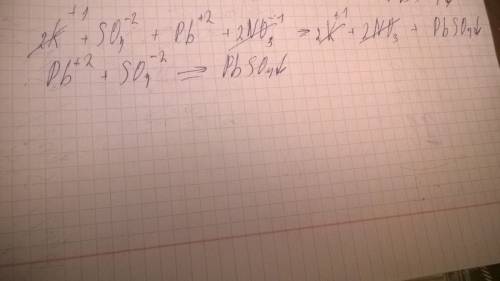 2K⁺¹ + SO₄⁻² + Pb⁺² + 2NO₃⁻¹ = 2K⁺¹ + 2NO₃ + PbSO₄↓
Pb⁺² + SO₄⁻² = PbSO₄↓